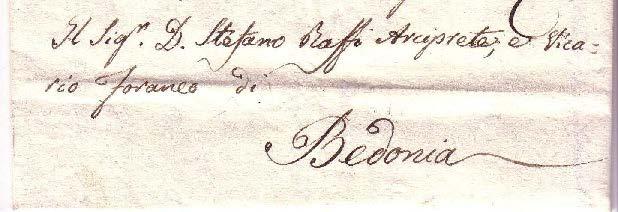 Il Sigr. D. Stefano Raffi Arciprete, e Vica-
rio Foraneo di
Bedonia